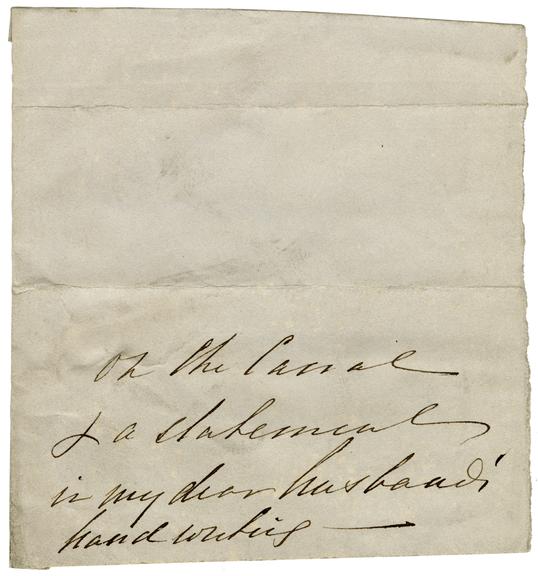 on the Canal
& a statement
in my dear husband's
hand writing —